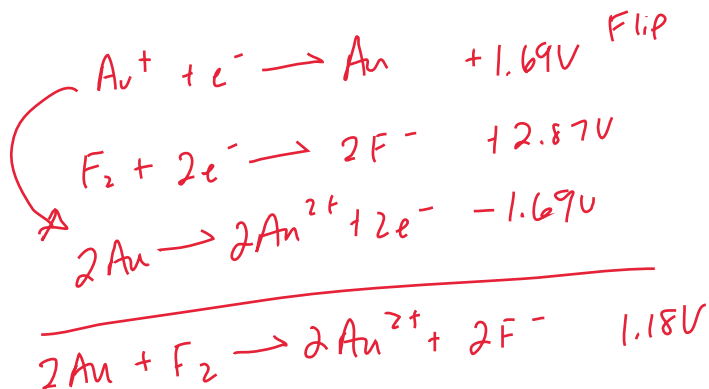 Au⁺ + e⁻ → Au +1.69V Flip
F₂ + 2e⁻ → 2F⁻ +2.87V
2Au → 2Au²⁺ + 2e⁻ -1.69V
2Au + F₂ → 2Au²⁺ + 2F⁻ 1.18V